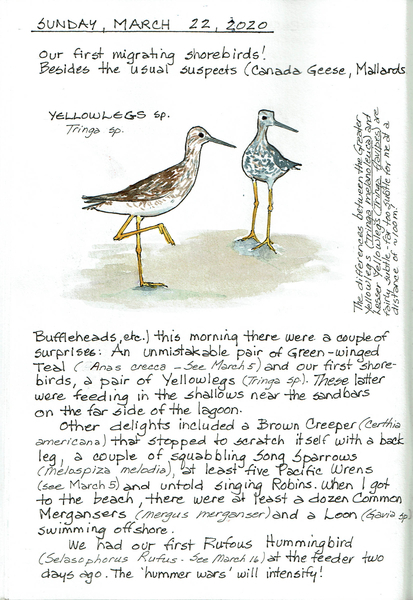 SUNDAY, MARCH 22, 2020
Our first migrating shorebirds!
Besides the usual suspects (Canada Geese, Mallards
YELLOWLEGS sp.
Tringa sp.
The differences between the Greater
Yellowlegs (Tringa melanoleuca) and
Lesser Yellowlegs (Tringa flavipes) are
fairly subtle - far too subtle for me at a
distance of ~100m?
Buffleheads, etc.) this morning there were a couple of
surprises: An unmistakable pair of Green-winged
Teal (Anas crecca - See March 5) and our first shore-
birds, a pair of Yellowlegs (Tringa sp). These latter
were feeding in the shallows near the sandbars
on the far side of the lagoon.
Other delights included a Brown Creeper (Certhia
americana) that stopped to scratch itself with a back
leg, a couple of squabbling Song Sparrows
(Melospiza melodia), at least five Pacific Wrens
(see March 5) and untold singing Robins. When I got
to the beach, there were at least a dozen Common
Mergansers (Mergus merganser) and a Loon (Gavia sp)
swimming offshore.
We had our first Rufous Hummingbird
(Selasophorus Rufus - See March 16) at the feeder two
days ago. The 'hummer wars' will intensify!